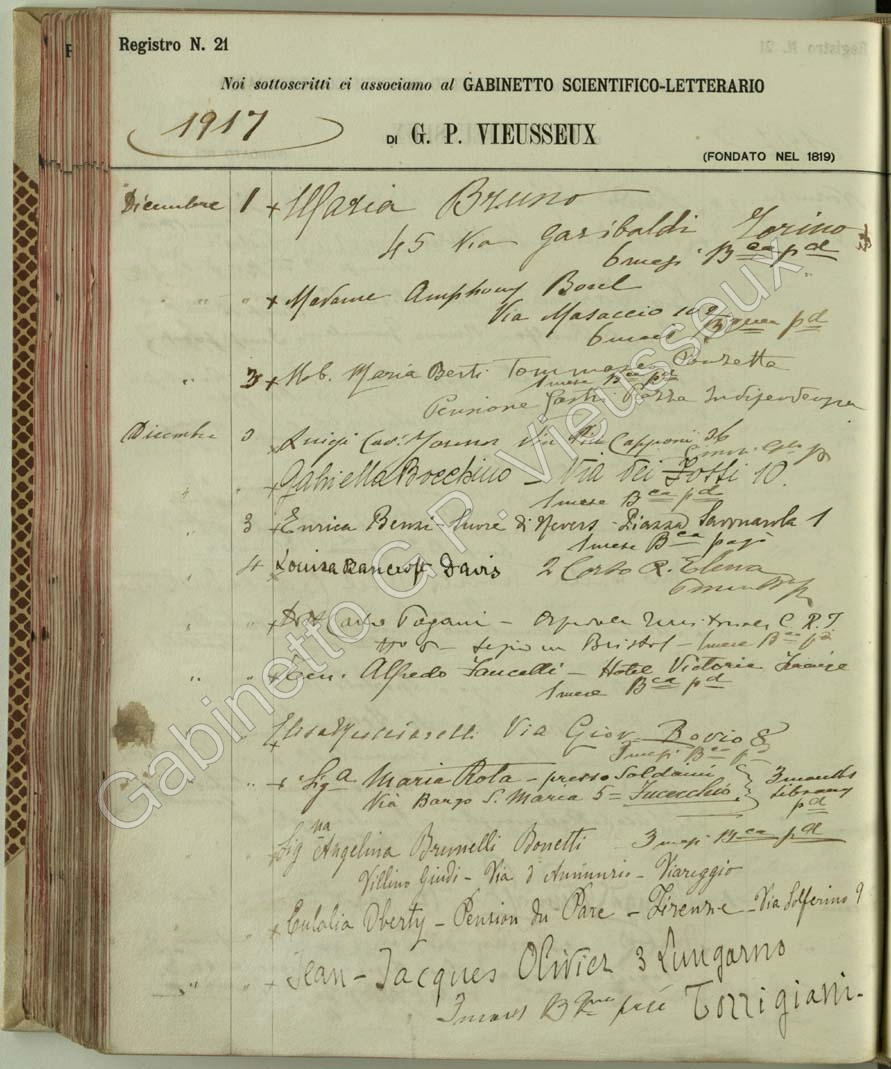 Registro N. 21
Noi sottoscritti ci associamo al GABINETTO SCIENTIFICO-LETTERARIO
1917
DI G. P. VIEUSSEUX
(FONDATO NEL 1819)
Dicembre 1 x Maria Bruno
45 Via Garibaldi Torino
6 mesi Bca pd
" " x Madame Amphoux
Via Masaccio
6 mesi pd
" 3 x Nob. Maria Berti Tommaseo
1 mese Bca pd
Pensione Piazza Indipendenza
Dicembre 3 x Luigi Cav. Via Capponi 36
" " x Gabriella Bocchino - Via dei Fossi 10.
1 mese Bca pd
3 x Enrica Benzi - Suore di Nevers - Piazza Savonarola 1
1 mese Bca pagò
4 x Louisa Bancroft Davis 2 Corso R. Elena
" x Dott Carlo Pagani - C. R. I.
Bristol - 1 mese Bca pd
" " x Gen. Alfredo - Hotel Victoria Firenze
1 mese Bca pd
" x Elisa Via Giov. Bovio 8
3 mesi Bca pd
" " x Siga Maria Rota - presso Soldaini 3 months
Via Borgo S. Maria 5 = Fucecchio Library
pd
x Signa Angelina Brunelli Bonetti 3 mesi Bca pd
Villino Giudi - Via d'Annunzio - Viareggio
" x Eulalia Uberty - Pension du Parc - Firenze - Via Solferino 9
" " x Jean-Jacques Olivier 3 Lungarno
3 mois Bque payé Torrigiani.
Gabinetto G.P. Vieusseux